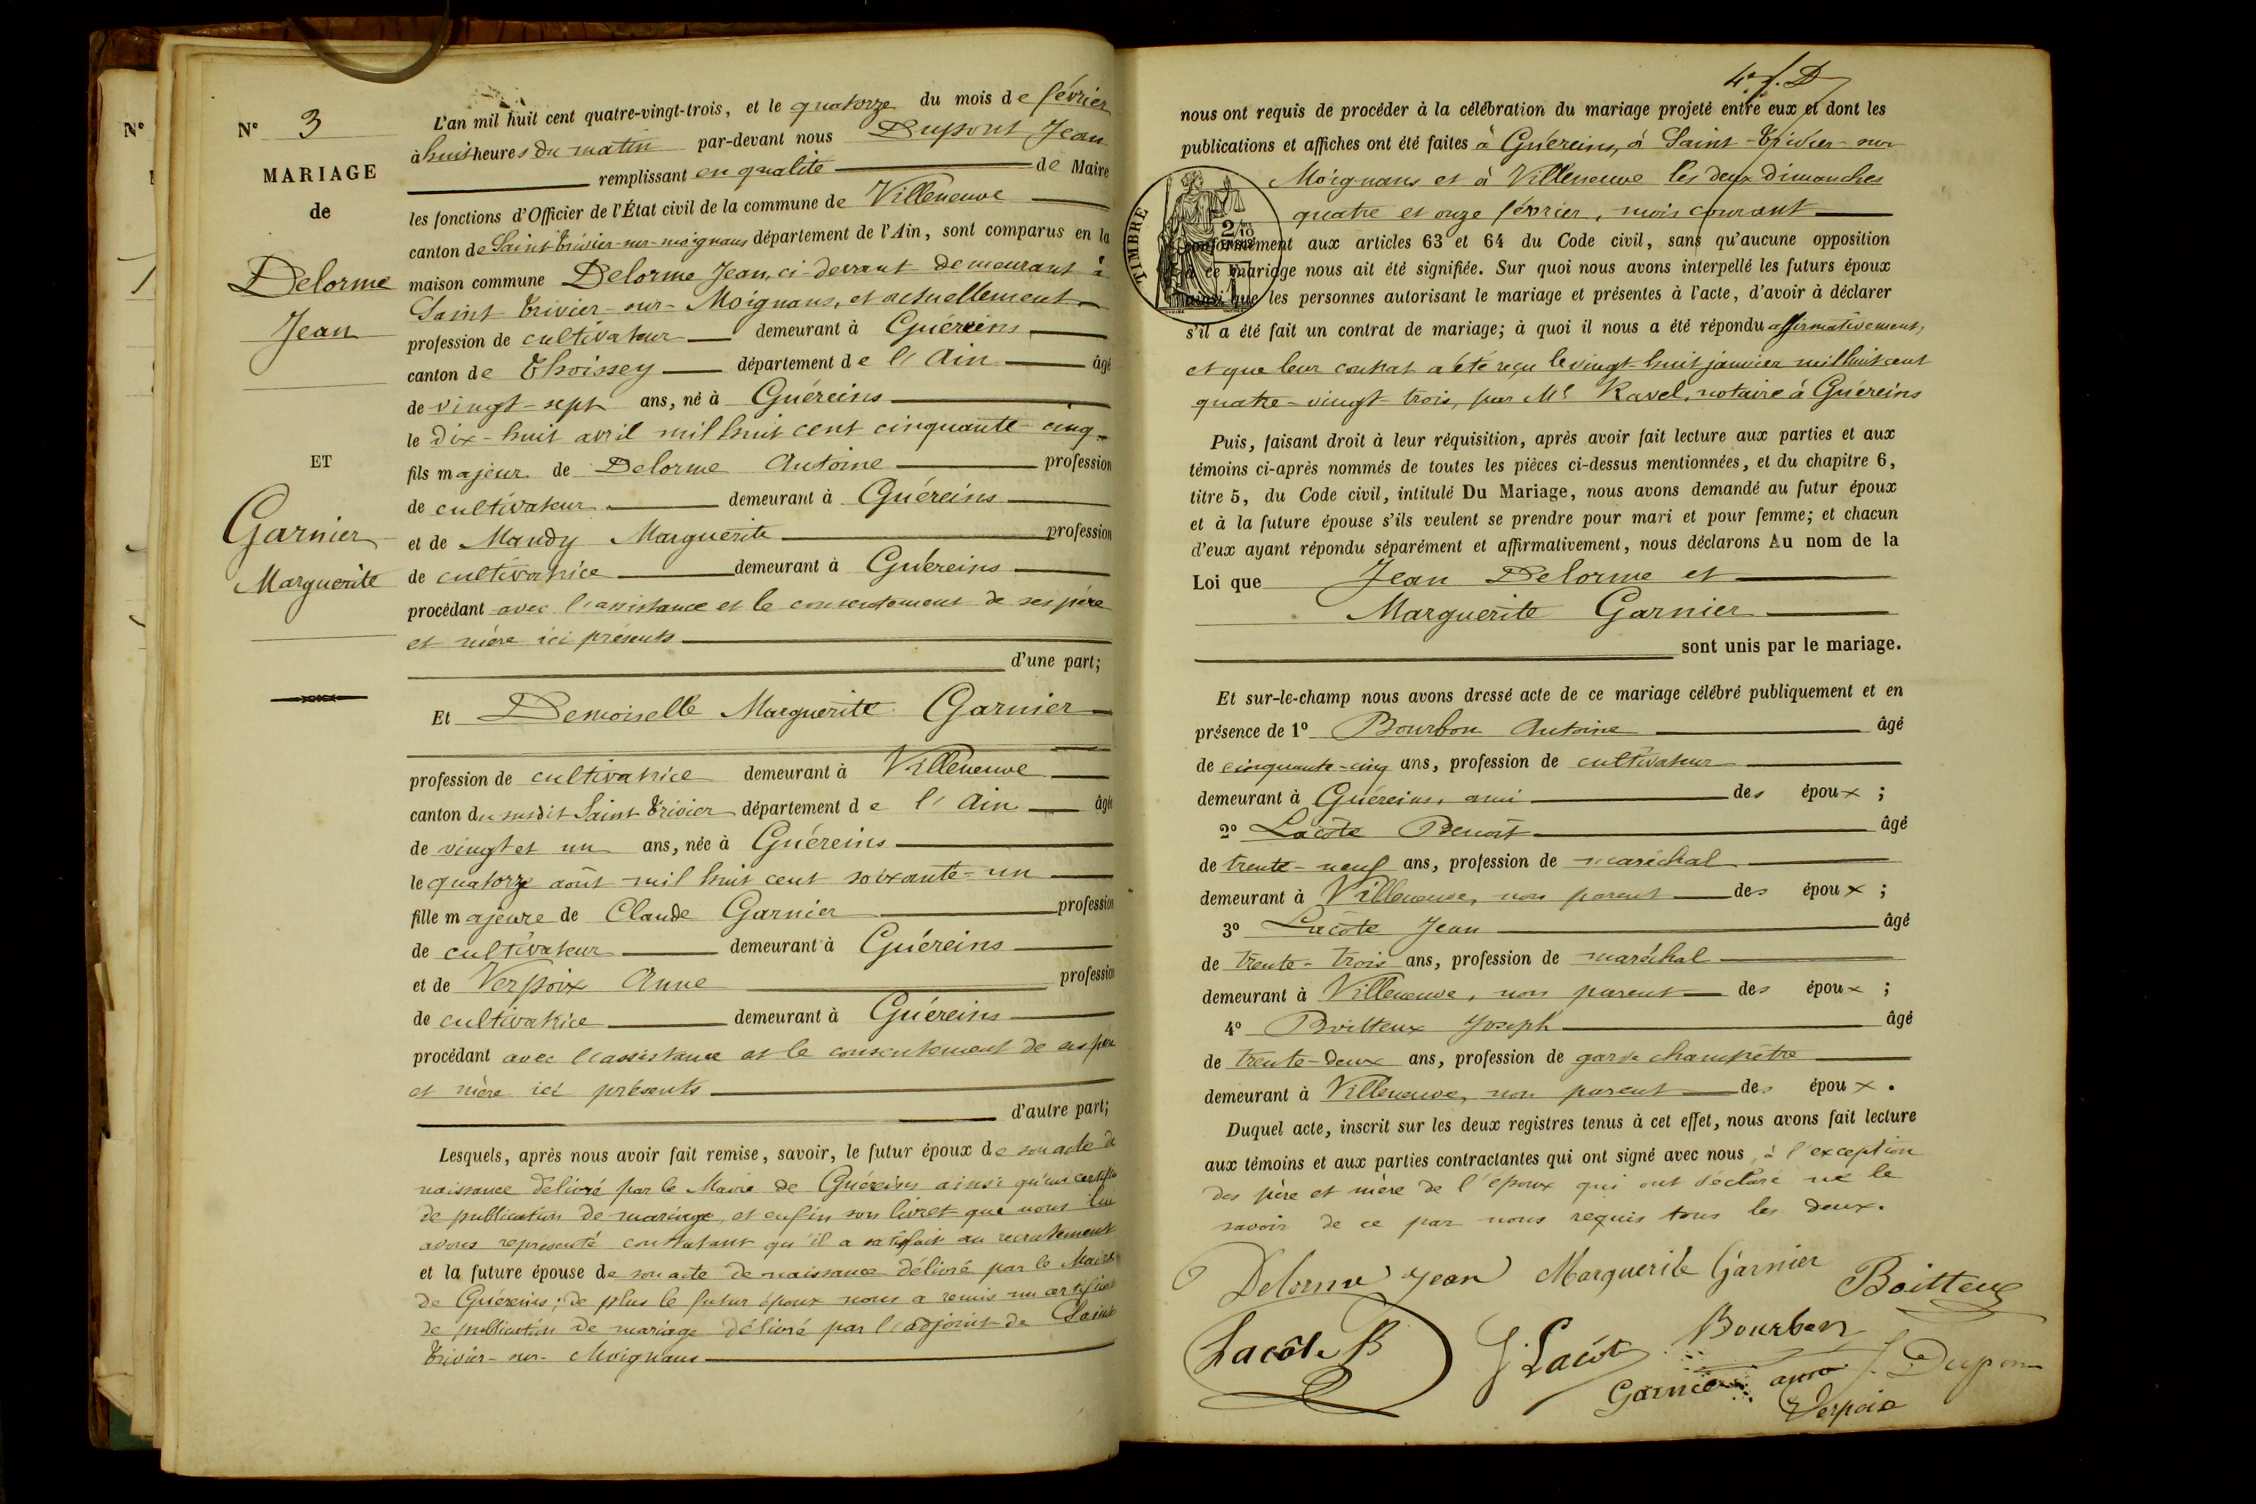 N° 3
MARIAGE
de
Delorme
Jean
ET
Garnier
Marguerite
L'an mil huit cent quatre-vingt-trois, et le quatorze du mois de février
à huit heures du matin par-devant nous Dupont Jean
remplissant en qualité de Maire
les fonctions d'Officier de l'État civil de la commune de Villeneuve
canton de Saint-Trivier-sur-moignans département de l'Ain, sont comparus en la
maison commune Delorme Jean, ci-devant demeurant à
Saint Trivier-sur-Moignans, et actuellement
profession de cultivateur demeurant à Guéreins
canton de Thoissey département de l'Ain âgé
de vingt-sept ans, né à Guéreins
le dix-huit avril mil huit cent cinquante-cinq
fils majeur de Delorme Antoine profession
de cultivateur demeurant à Guéreins
et de Mandy Marguerite profession
de cultivatrice demeurant à Guéreins
procédant avec l'assistance et le consentement de ses père
et mère ici présents
d'une part;
Et Demoiselle Marguerite Garnier
profession de cultivatrice demeurant à Villeneuve
canton du susdit Saint Trivier département de l'Ain âgée
de vingt et un ans, née à Guéreins
le quatorze août mil huit cent soixante-un
fille majeure de Claude Garnier profession
de cultivateur demeurant à Guéreins
et de Verpoix Anne profession
de cultivatrice demeurant à Guéreins
procédant avec l'assistance et le consentement de ses père
et mère ici présents
d'autre part;
Lesquels, après nous avoir fait remise, savoir, le futur époux de son acte de
naissance délivré par le Maire de Guéreins ainsi qu'un certificat
de publication de mariage, et enfin son livret que nous
avons représenté constatant qu'il a satisfait au recrutement
et la future épouse de son acte de naissance délivré par le Maire
de Guéreins; de plus le futur époux nous a remis un certificat
de publication de mariage délivré par l'adjoint de Saint
Trivier-sur-Moignans
nous ont requis de procéder à la célébration du mariage projeté entre eux et dont les
publications et affiches ont été faites à Guéreins, à Saint-Trivier-sur
Moignans et à Villeneuve les deux dimanches
quatre et onze février, mois courant
TIMBRE
conformément aux articles 63 et 64 du Code civil, sans qu'aucune opposition
à ce mariage nous ait été signifiée. Sur quoi nous avons interpellé les futurs époux
ainsi que les personnes autorisant le mariage et présentes à l'acte, d'avoir à déclarer
s'il a été fait un contrat de mariage; à quoi il nous a été répondu affirmativement,
et que leur contrat a été reçu le vingt-huit janvier mil huit cent
quatre-vingt-trois, par Me Ravel, notaire à Guéreins
Puis, faisant droit à leur réquisition, après avoir fait lecture aux parties et aux
témoins ci-après nommés de toutes les pièces ci-dessus mentionnées, et du chapitre 6,
titre 5, du Code civil, intitulé Du Mariage, nous avons demandé au futur époux
et à la future épouse s'ils veulent se prendre pour mari et pour femme; et chacun
d'eux ayant répondu séparément et affirmativement, nous déclarons Au nom de la
Loi que Jean Delorme et
Marguerite Garnier
sont unis par le mariage.
Et sur-le-champ nous avons dressé acte de ce mariage célébré publiquement et en
présence de 1° Bourbon Antoine âgé
de cinquante-cinq ans, profession de cultivateur
demeurant à Guéreins, ami des époux ;
2° Lacôte Benoît âgé
de trente-neuf ans, profession de maréchal
demeurant à Villeneuve, non parent des époux ;
3° Lacôte Jean âgé
de trente-trois ans, profession de maréchal
demeurant à Villeneuve, non parent des époux ;
4° Boitteux Joseph âgé
de trente-deux ans, profession de garde champêtre
demeurant à Villeneuve, non parent des époux.
Duquel acte, inscrit sur les deux registres tenus à cet effet, nous avons fait lecture
aux témoins et aux parties contractantes qui ont signé avec nous, à l'exception
des père et mère de l'époux qui ont déclaré ne le
savoir de ce par nous requis tous les deux.
Delorme Jean Marguerite Garnier Boitteux
Lacôte B J. Lacôte Bourbon
Garnier J. Dupont
Verpoix